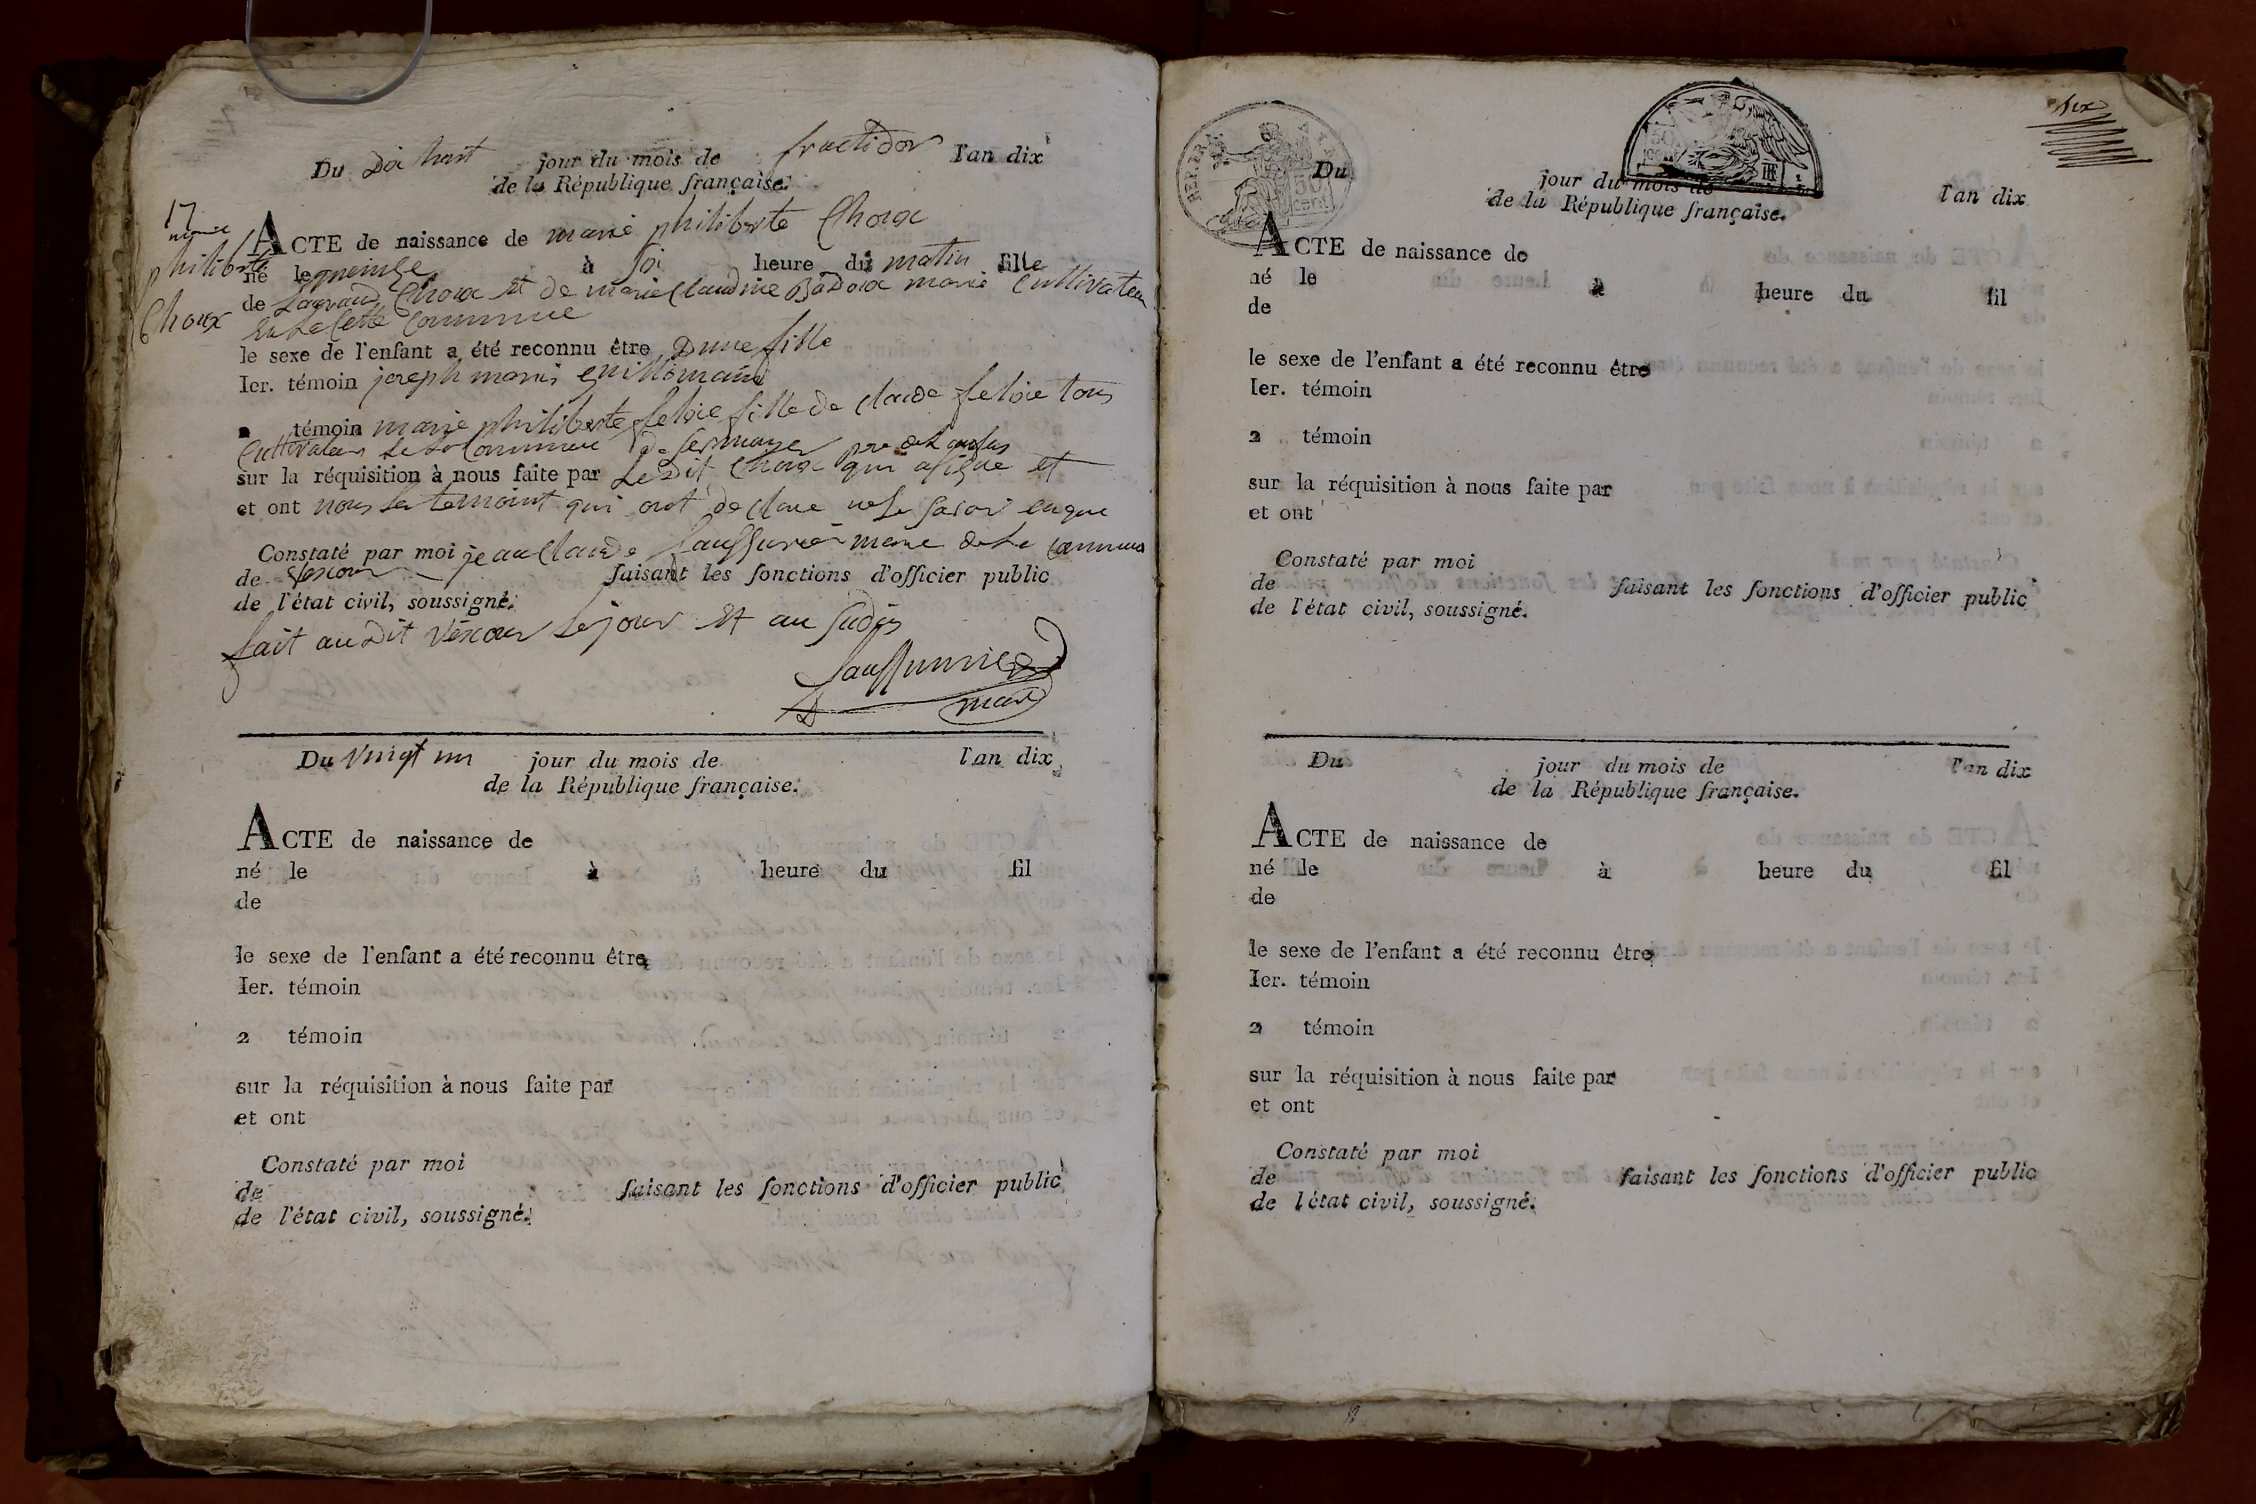 Du Dix huit jour du mois de fructidor l'an dix
de la République française.
17
marie
philiberte
Choux
ACTE de naissance de marie philiberte Choux
né le quinze à si heure du matin fille
de Choux et de marie Claudine mariè Cultivateur
de Cette Commune
le sexe de l'enfant a été reconnu être D'une fille
Ier. témoin joseph marie guillomain
2 témoin marie philiberte felvie fille de claude felvie tous
Cultivateur de la Commune de sermaye
sur la réquisition à nous faite par Le Dit Choux qui a signe et
et ont nous les temoint qui ont declare ne le savoir enque
Constaté par moi jean Claude Saussurier maire de la commune
de faisant les fonctions d'officier public
de l'état civil, soussigné.
fait au Dit le jour et an sudis
maire
Du Vingt un jour du mois de l'an dix
de la République française.
ACTE de naissance de
né le à heure du fil
de
le sexe de l'enfant a été reconnu être
Ier. témoin
2 témoin
sur la réquisition à nous faite par
et ont
Constaté par moi
de faisant les fonctions d'officier public
de l'état civil, soussigné.
six
REP. FRA.
50
cent
Du jour du mois de l'an dix
de la République française.
ACTE de naissance de
né le à heure du fil
de
le sexe de l'enfant a été reconnu être
Ier. témoin
2 témoin
sur la réquisition à nous faite par
et ont
Constaté par moi
de faisant les fonctions d'officier public
de l'état civil, soussigné.
Du jour du mois de l'an dix
de la République française.
ACTE de naissance de
né le à heure du fil
de
le sexe de l'enfant a été reconnu être
Ier. témoin
2 témoin
sur la réquisition à nous faite par
et ont
Constaté par moi
de faisant les fonctions d'officier public
de l'état civil, soussigné.